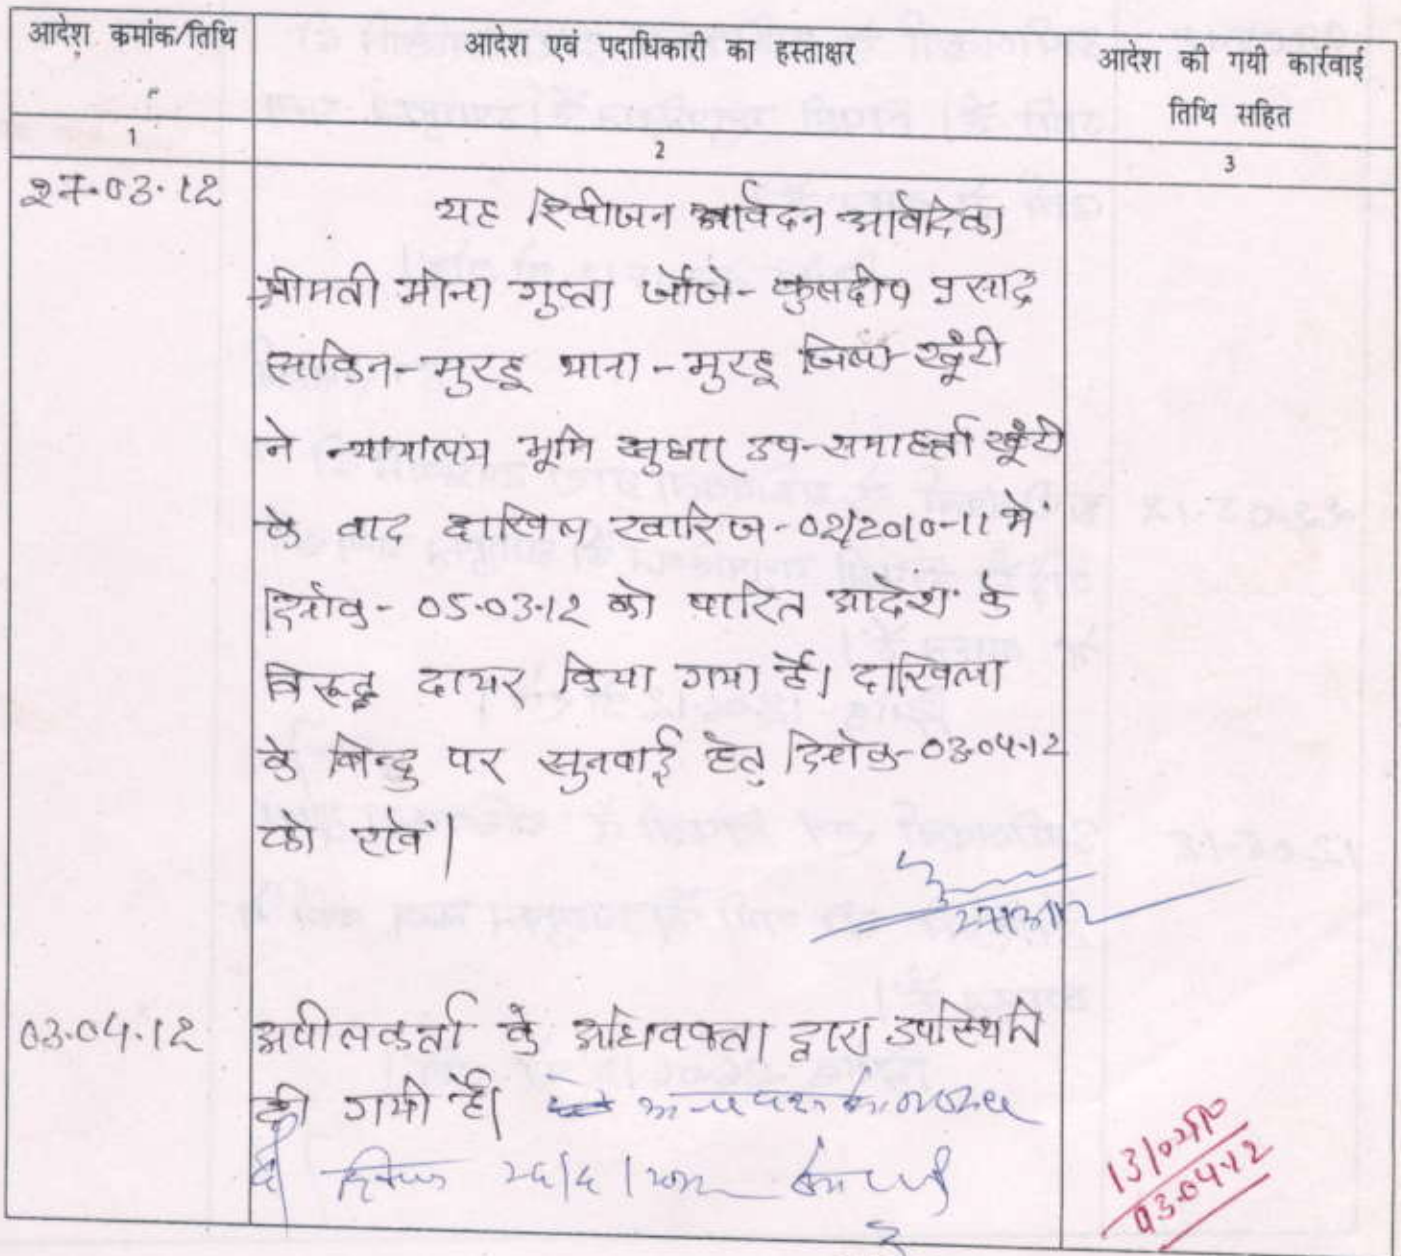 आदेश कमांक/तिथि
आदेश एवं पदाधिकारी का हस्ताक्षर
आदेश की गयी कार्रवाई
तिथि सहित
1
2
3
27.03.12
यह रिवीजन आवेदन आवेदिका
श्रीमती मीना गुप्ता जौजे- कुलदीप प्रसाद
साकिन-मुरहू थाना-मुरहू जिला-खूंटी
ने न्यायालय भूमि सुधार उप-समाहर्ता खूंटी
के वाद दाखिल खारिज-02/2010-11 में
दिनांक- 05.03.12 को पारित आदेश के
विरूद्ध दायर किया गया है। दाखिला
के बिन्दु पर सुनवाई हेतु दिनांक-03.04.12
को रखें।
03.04.12
अपीलकर्ता के अधिवक्ता द्वारा उपस्थिति
दी गयी है।
दिनांक
03.04.12